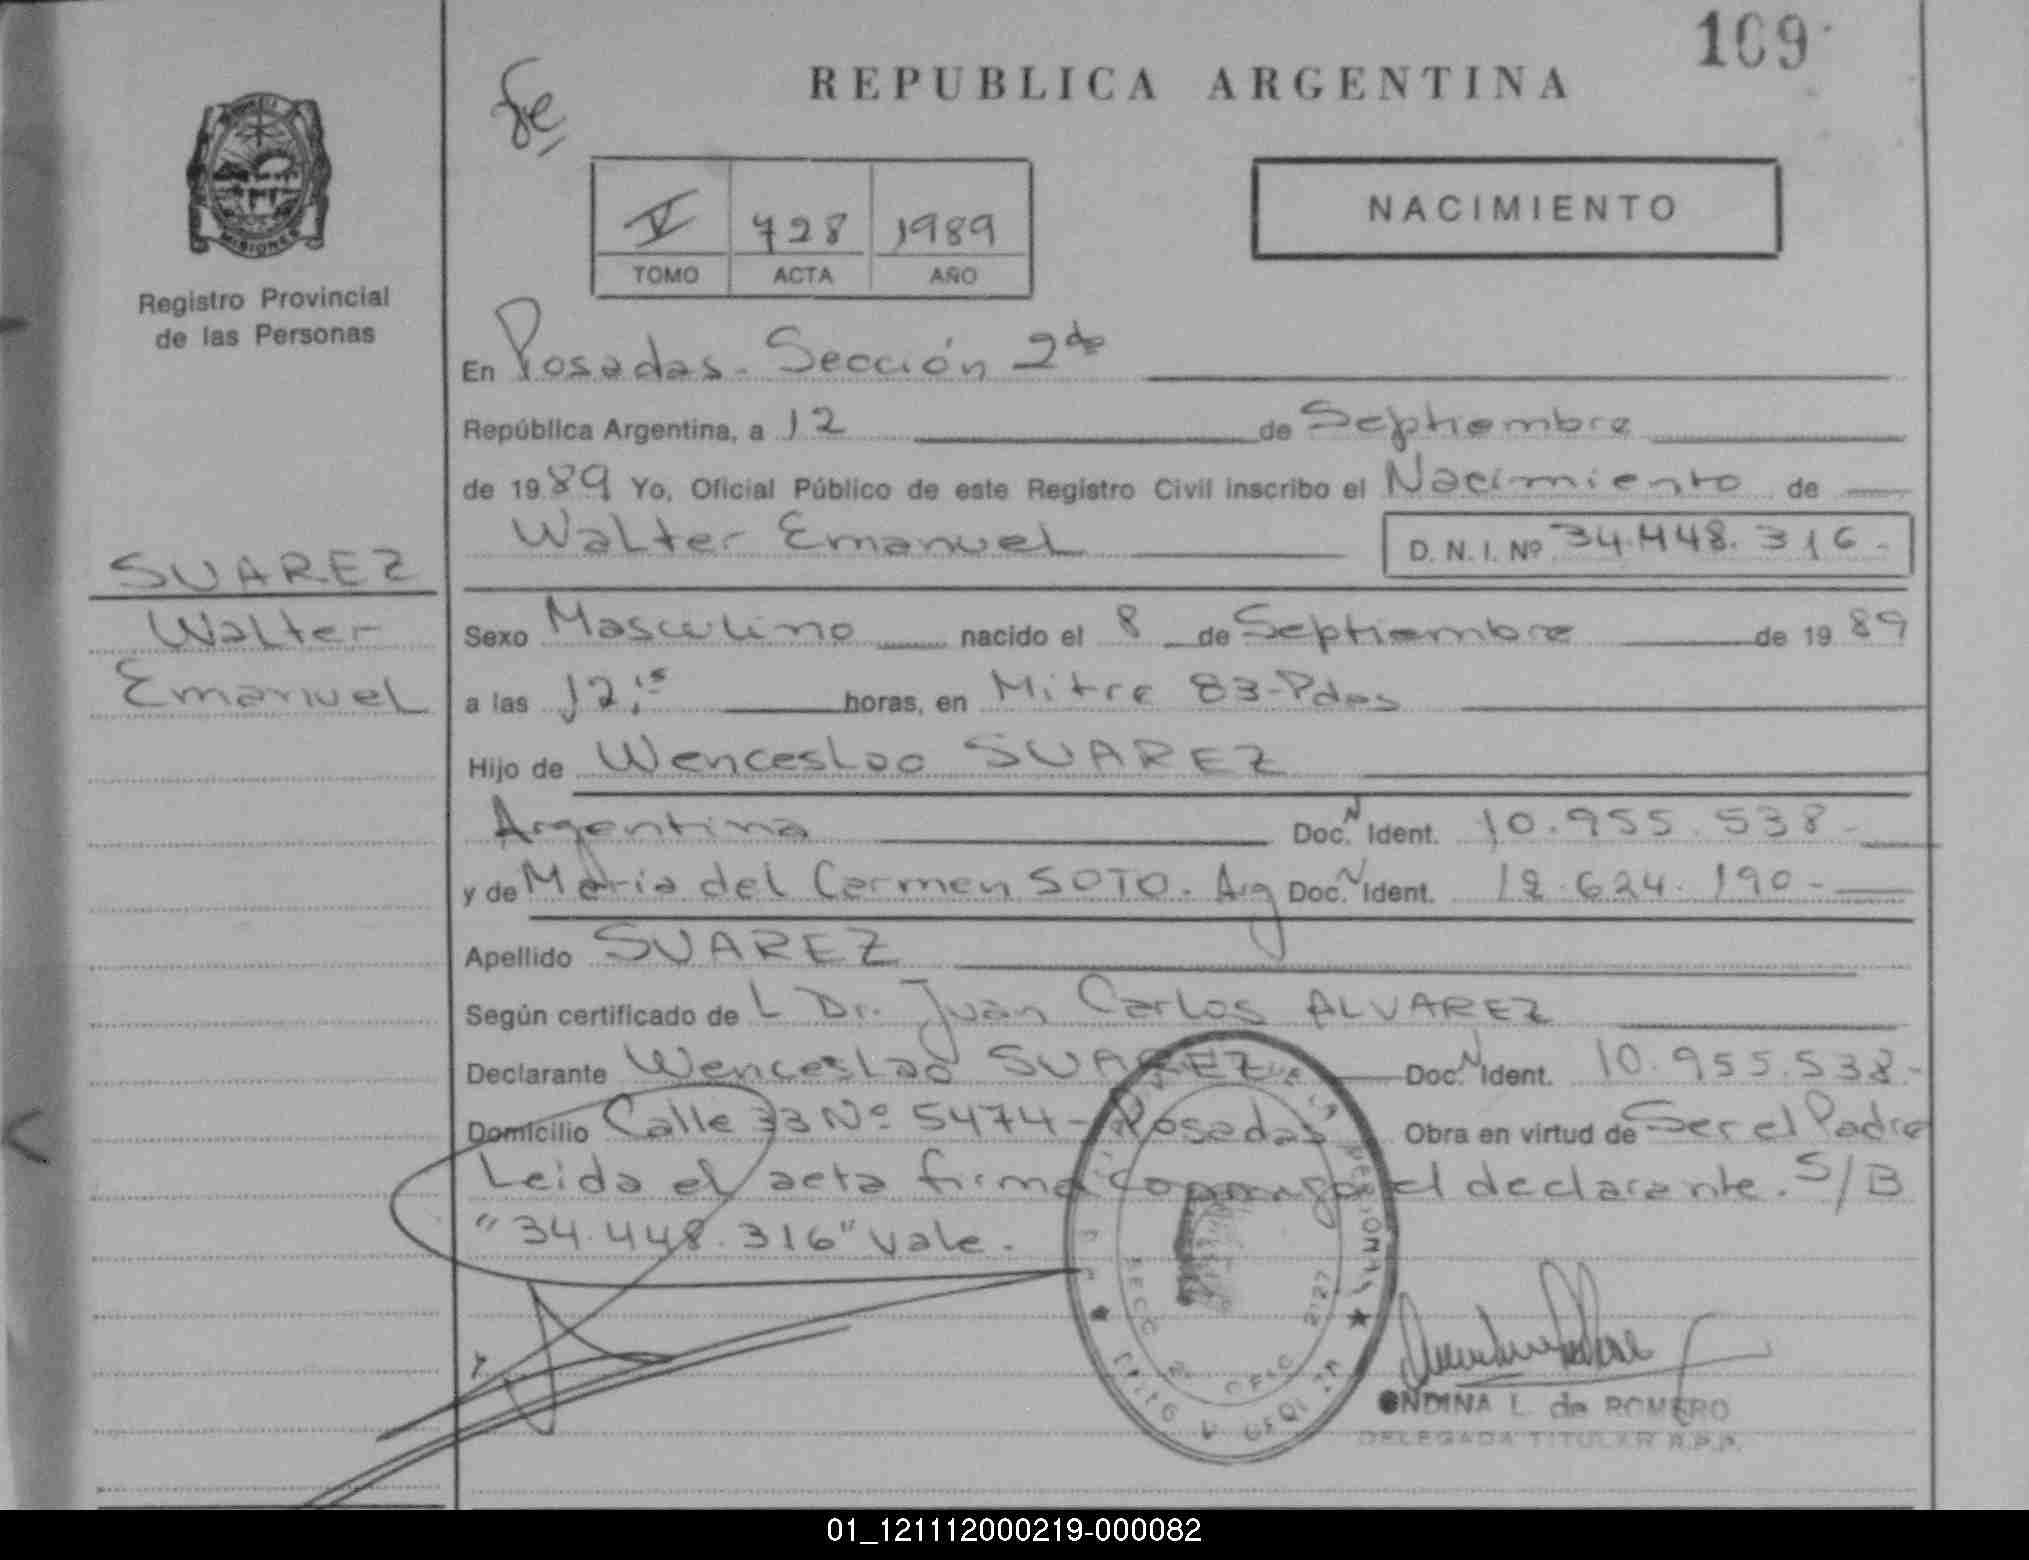 109
REPUBLICA ARGENTINA
NACIMIENTO
V 728 1989
TOMO ACTA AÑO
MISIONES
Registro Provincial
de las Personas
En Posadas - Sección 2da
República Argentina, a 12 de Septiembre
de 1989 Yo, Oficial Público de este Registro Civil inscribo el Nacimiento de
Walter Emanuel D.N.I. Nº 34.448.316.-
SUAREZ
Walter
Emanuel
Sexo Masculino nacido el 8 de Septiembre de 1989
a las 12,15 horas, en Mitre 83-Pdas
Hijo de Wenceslao SUAREZ
Argentina Doc. N Ident. 10.955.538-
y de María del Carmen SOTO. Arg Doc. N Ident. 12.624.190-
Apellido SUAREZ
Según certificado de L Dr. Juan Carlos ALVAREZ
Declarante Wenceslao SUAREZ Doc. N Ident. 10.955.538-
Domicilio Calle 33 Nº 5474- Posadas Obra en virtud de Ser el Padre
Leida el acta firma conmigo el declarante. S/B
"34.448.316" vale.
ONDINA L. de ROMERO
DELEGADA TITULAR R.P.P.
01_121112000219-000082